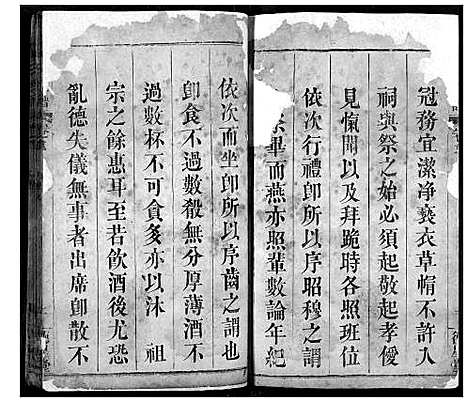 冠務宜潔净褻衣草帽不許入
祠與祭之始必須起敬起孝優
見愾聞以及拜跪時各照班位
依次行禮卽所以序昭穆之謂
祭畢而燕亦照輩數論年紀
依次而坐卽所以序齒之謂也
卽食不過數殽無分厚薄酒不
過數杯不可貪多亦以沐 祖
宗之餘惠耳至若飲酒後尤恐
亂德失儀無事者出席卽散不